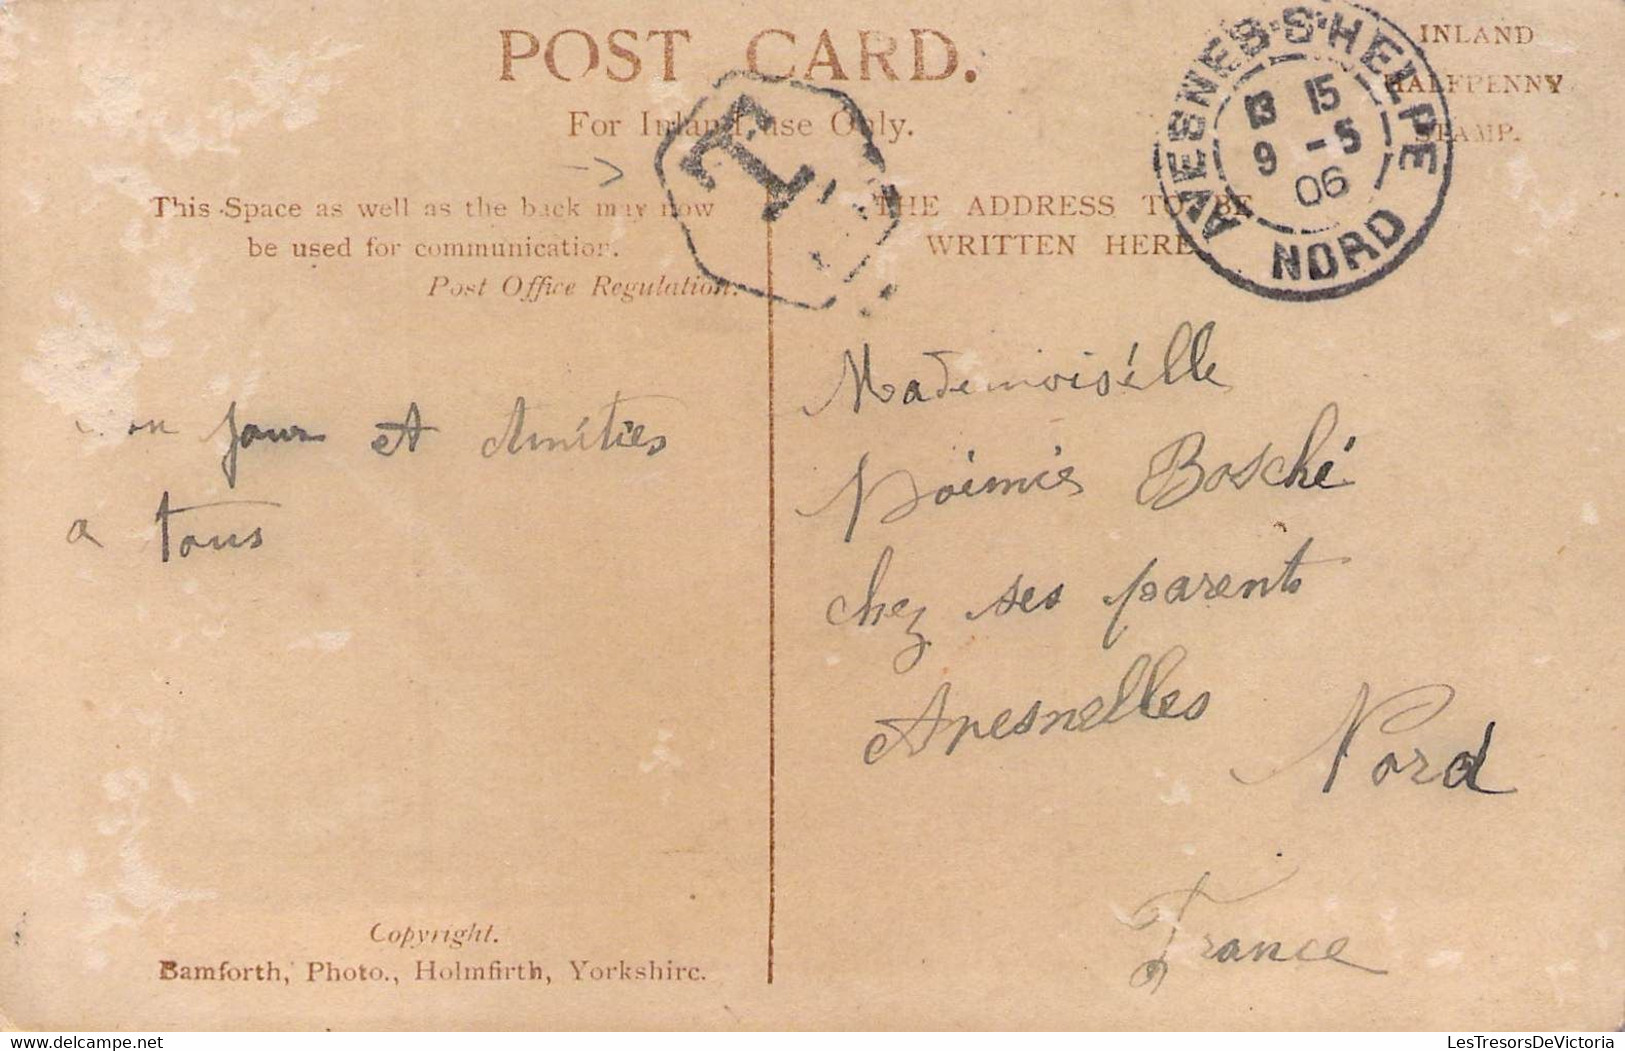 POST CARD.
For Inland use Only.
INLAND
HALFPENNY
STAMP.
AVESNES-S-HELPE
13 15
9 - 5
06
NORD
T
This Space as well as the back may now
be used for communication.
Post Office Regulation.
THE ADDRESS TO BE
WRITTEN HERE
Bon jour et Amitiés
a tous
Mademoisélle
Noémie Bosché
chez ses parents
Avesnelles
Nord
France
Copyright.
Bamforth, Photo., Holmfirth, Yorkshire.
LesTresorsDeVictoria - https://www.delcampe.net
LesTresorsDeVictoria